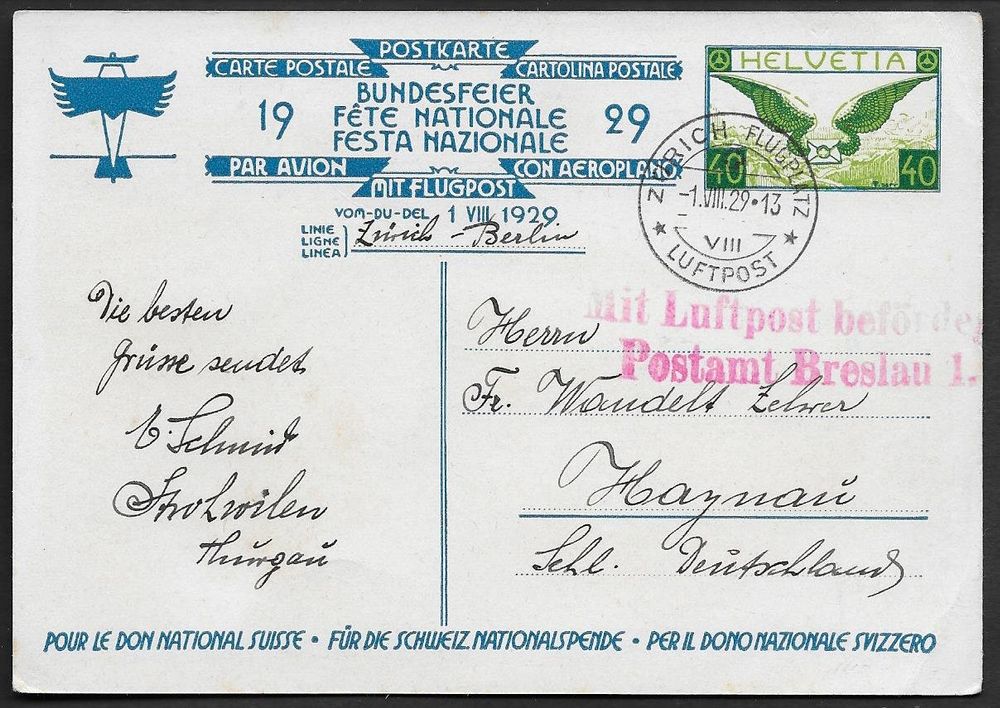 POSTKARTE
CARTE POSTALE CARTOLINA POSTALE
BUNDESFEIER
19 FÊTE NATIONALE 29
FESTA NAZIONALE
PAR AVION CON AEROPLANO
MIT FLUGPOST
VOM-DU-DEL 1 VIII 1929
LINIE
LIGNE
LINEA
Zürich - Berlin
HELVETIA
40 40
ZÜRICH FLUGPLATZ
-1.VIII.29.13
VIII
LUFTPOST
Mit Luftpost beförde
Postamt Breslau 1.
Die besten
Grüsse sendet
E. Schmid
Thurgau
Herrn
Fr. Wandelt
Haynau
Schl. Deutschland
POUR LE DON NATIONAL SUISSE • FÜR DIE SCHWEIZ. NATIONALSPENDE • PER IL DONO NAZIONALE SVIZZERO